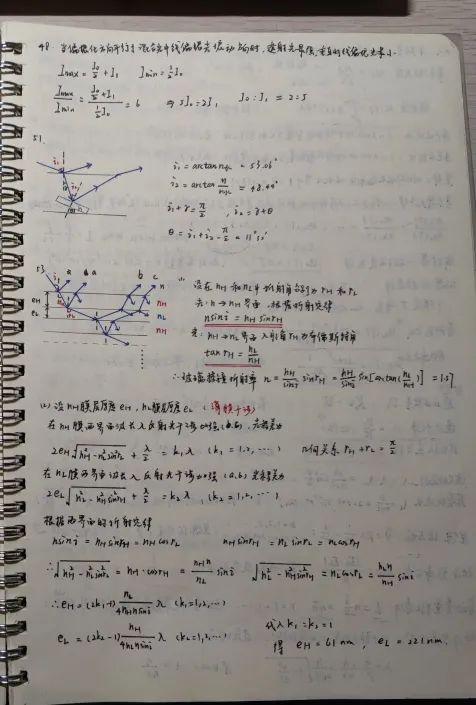 48. 当偏振化方向平行于混合光中线偏振光振动方向时，透射光最强，垂直时线偏光最小.
Imax = I₀/2 + I₁   Imin = ½I₀
Imax/Imin = (I₀/2 + I₁)/(½I₀) = 6   ⇒ 5I₀ = 2I₁   I₀ : I₁ = 2 : 5
51.
i₁ = arctan n水 = 53.06°
i₂ = arctan n/n水 = 48.44°
i₁ + γ = π/2 , i₂ = γ + θ
θ = i₁ + i₂ - π/2 = 11°30'
53
a a b c
n
nH
nL
nH
eH
eL
(1) 设在 nH 和 nL 中折射角分别为 rH 和 rL
光: n → nH 界面, 根据折射定律
n sin i = nH sin rH
光: nH → nL 界 入射角 rH 为布儒斯特角
tan rH = nL/nH
∴ 玻璃棱镜折射率 n = nH/sin i sin rH = nH/sin i sin[arctan(nL/nH)] =
(2) 设 nH 膜层厚度 eH, nL 膜层厚度 eL (薄膜干涉)
在 nH 膜两界面 波长 λ 反射光干涉加强, 光程差为
2eH√(nH² - n² sin² i) + λ/2 = k₁λ (k₁ = 1, 2, ⋯)   几何关系 rH + rL = π/2
在 nL 膜两界面 波长 λ 反射光干涉加强 (a, b) 光程差为
2eL√(nL² - nH² sin² rH) + λ/2 = k₂λ (k₂ = 1, 2, ⋯)
根据两界面的折射定律
n sin i = nH sin rH = nH cos rL   nH sin rH = nL sin rL = nL cos rH
∴ √(nH² - nL² sin² rL) = nH · cos rH = nH n/nL sin i   √(nL² - nH² sin² rH) = nL cos rL = nL n/nH sin i
∴ eH = (2k₁-1) nL/(4nH n sin i) λ (k₁ = 1, 2, ⋯)
eL = (2k₂-1) nH/(4nL n sin i) λ (k₂ = 1, 2, ⋯)
代入 k₁ = k₂ = 1
得 eH = 61 nm, eL = 221 nm.